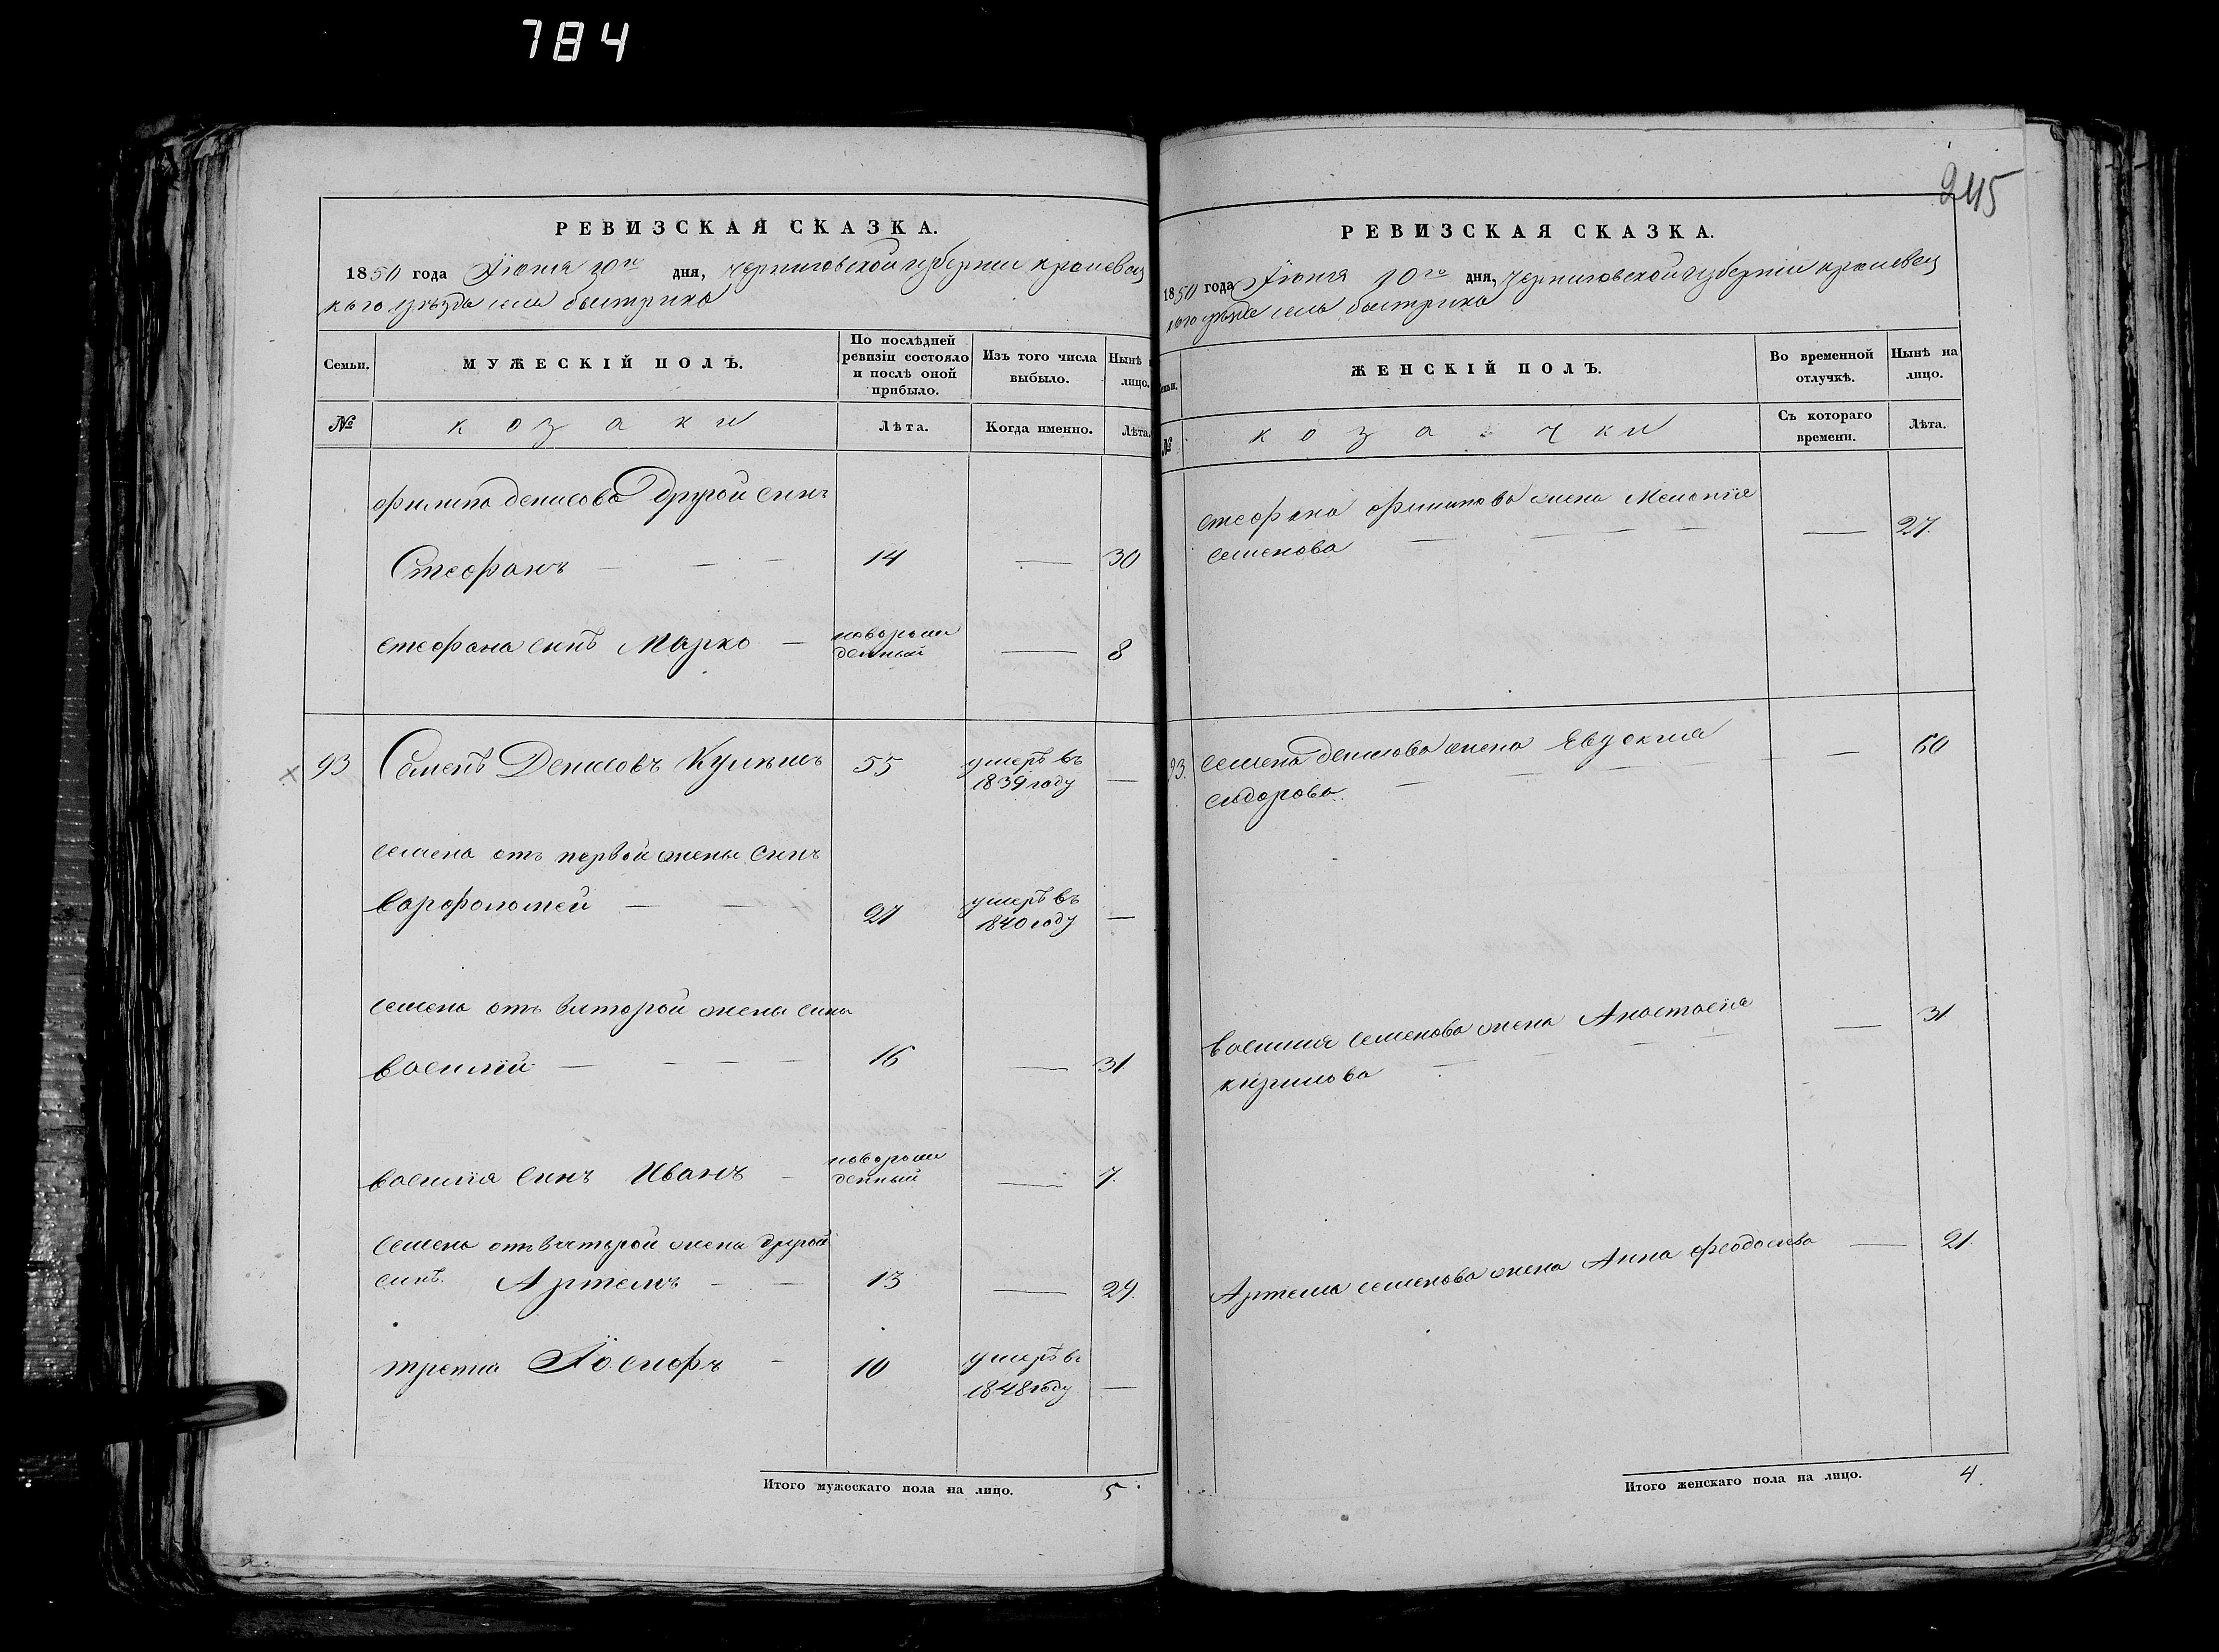 784
РЕВИЗСКАЯ СКАЗКА.
1850 года Іюня 10го дня, черниговской губерніи кролевец
каго уѣзда села быстрика
Семьи.
МУЖЕСКІЙ ПОЛЪ.
По послѣдней ревизіи состояло и послѣ оной прибыло.
Изъ того числа выбыло.
Нынѣ
лицо.
№
козаки
Лѣта.
Когда именно.
Лѣта.
филипа денисова другой синъ
Стефанъ 14 — 30
стефана синъ Марко — новорож
денный — 8
93 Семенъ Денисовъ 55 умеръ въ
1839 году —
семена отъ первой жены синъ
варфоломей — — 27 умеръ въ
1840 году —
семена отъ второй жены сины
василій — — — — 16 — 31
василія синъ Иванъ — новорож
денный — 7.
семена отъ второй жены другой
синъ. Артемъ — — 13 — 29.
третій Іосифъ — 10 умеръ въ
1848 году —
Итого мужескаго пола на лицо. 5
245
РЕВИЗСКАЯ СКАЗКА.
1850 года Іюня 10го дня, черниговской губерніи кролевец
каго уѣзда села быстрика
ЖЕНСКІЙ ПОЛЪ.
Во временной отлучкѣ.
Нынѣ на лицо.
№
козачки
Съ котораго времени.
Лѣта.
стефана филипова жена Меланія
семенова — 27.
93. семена денисова жена Евдокия — 60
сидорова
василия семенова жена Анастасія — 31
кирилова
Артема семенова жена Анна феодосіева — 21.
Итого женскаго пола на лицо. 4.